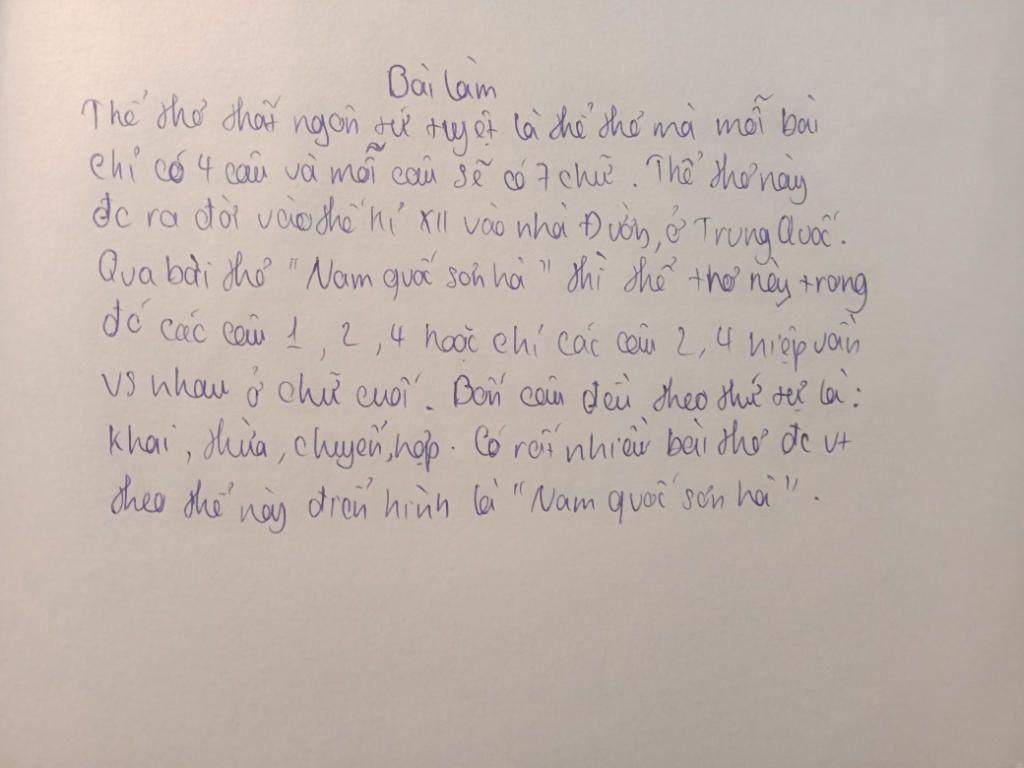 Bài làm
Thể thơ thất ngôn tứ tuyệt là thể thơ mà mỗi bài
chỉ có 4 câu và mỗi câu sẽ có 7 chữ. Thể thơ này
đc ra đời vào thế kỉ XII vào nhà Đường, ở Trung Quốc.
Qua bài thơ "Nam quốc sơn hà" thì thể thơ này trong
đó các câu 1, 2, 4 hoặc chỉ các câu 2, 4 hiệp vần
vs nhau ở chữ cuối. Bốn câu đều theo thứ tự là:
khai, thừa, chuyển, hợp. Có rất nhiều bài thơ đc vt
theo thể này điển hình là "Nam quốc sơn hà".